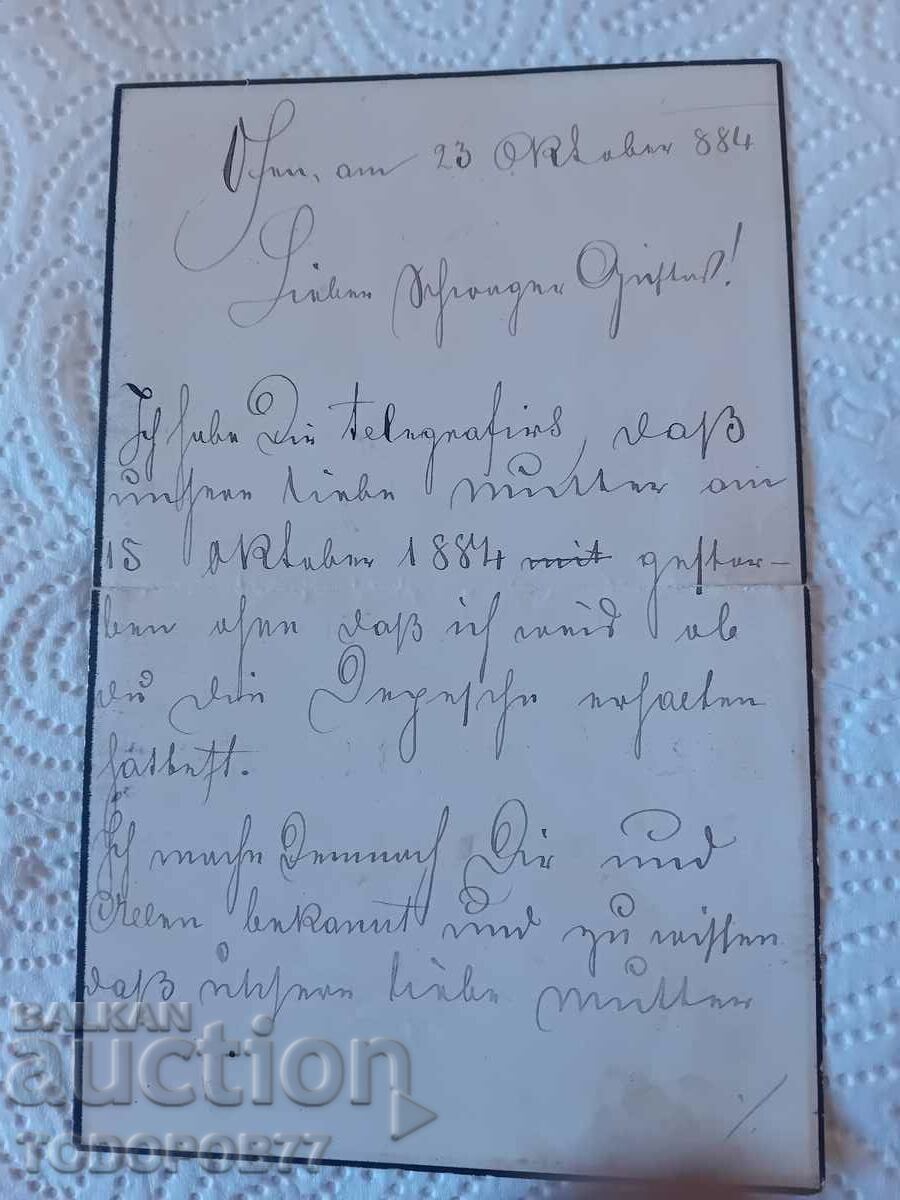 Ofen, am 23 Oktober 884
Lieber Schwager Gustav!
Ich habe Dir telegrafirt, daß
unsere liebe Mutter am
15 Oktober 1884 mit gestor-
ben ohne daß ich weis ob
du die Depesche erhalten
hättest.
Ich mache Demnach Dir und
Allen bekannt und zu wissen
daß unsere liebe Mutter
./.
BALKAN
auction
TODOROB77